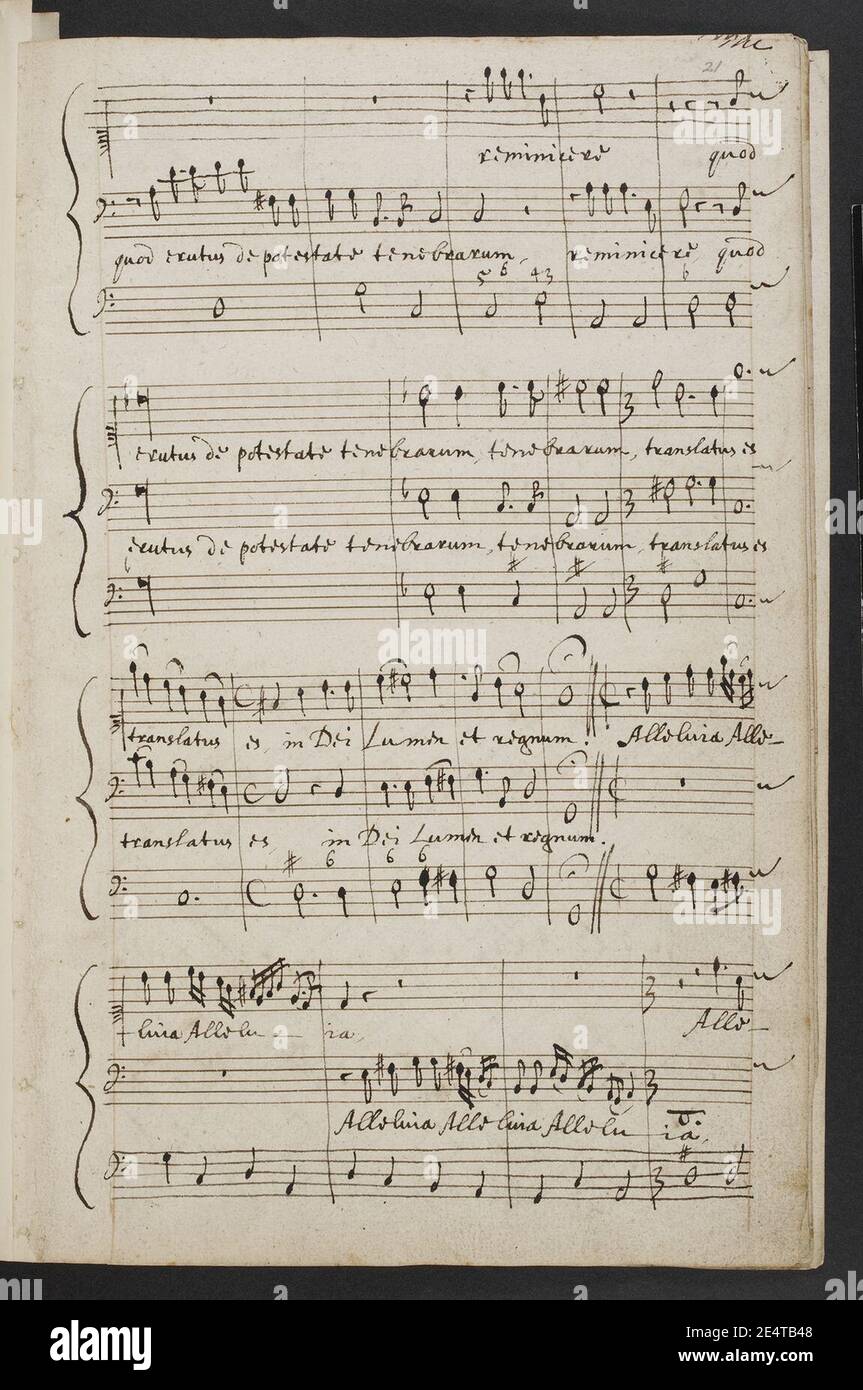 21
reminicere quod
quod erutus de potestate tenebrarum, reminicere quod
5 6 43 6
erutus de potestate tenebrarum, tenebrarum, translatus es
erutus de potestate tenebrarum, tenebrarum, translatus es
3
3
3
translatus es, in Dei Lumen et regnum. Alleluia Alle-
translatus es, in Dei Lumen et regnum.
6 6 6
-luia Allelu - ia, Alle-
3
Alleluia Alleluia Allelu - ia,
3
3
alamy
a
Image ID: 2E4TB48
www.alamy.com